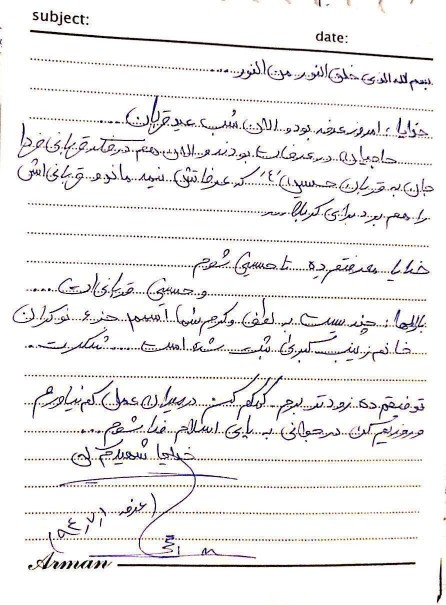 subject:
date:
بسم الله الذی خلق النور من النور...
خدایا، امروز عرفه بود و الان شب عید قربان
حاجیان در عرفات بودند و الان هم در فکر قربانی فردا
جان به قربان حسین (ع) که عرفاتش نیمه ماند و قربانی اش
را هم برد برای کربلا...
خدایا معرفتم ده تا حسینی شوم
و حسینی قربانی ات....
بارالها، چند است به لطف و کرم شما اسمم جزء نوکران
خانم زینب کبری ثبت شده است ... شکرت..
توفیقم ده زودتر بروم کمکم کن در میدان عمل کم نیاورم
و روزیم کن در جوانی به پای اسلام فدا شوم...
خدایا شهیدم کن
عرفه
۹۴/۷/۱
Arman